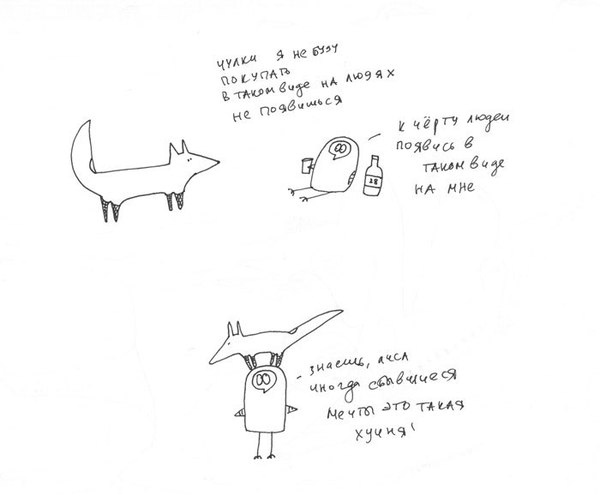 чулки я не буду
покупать
в таком виде на людях
не появишься
к чёрту людей
появись в
таком виде
на мне
18
знаешь, лиса
иногда сбывшиеся
мечты это такая
хуйня!